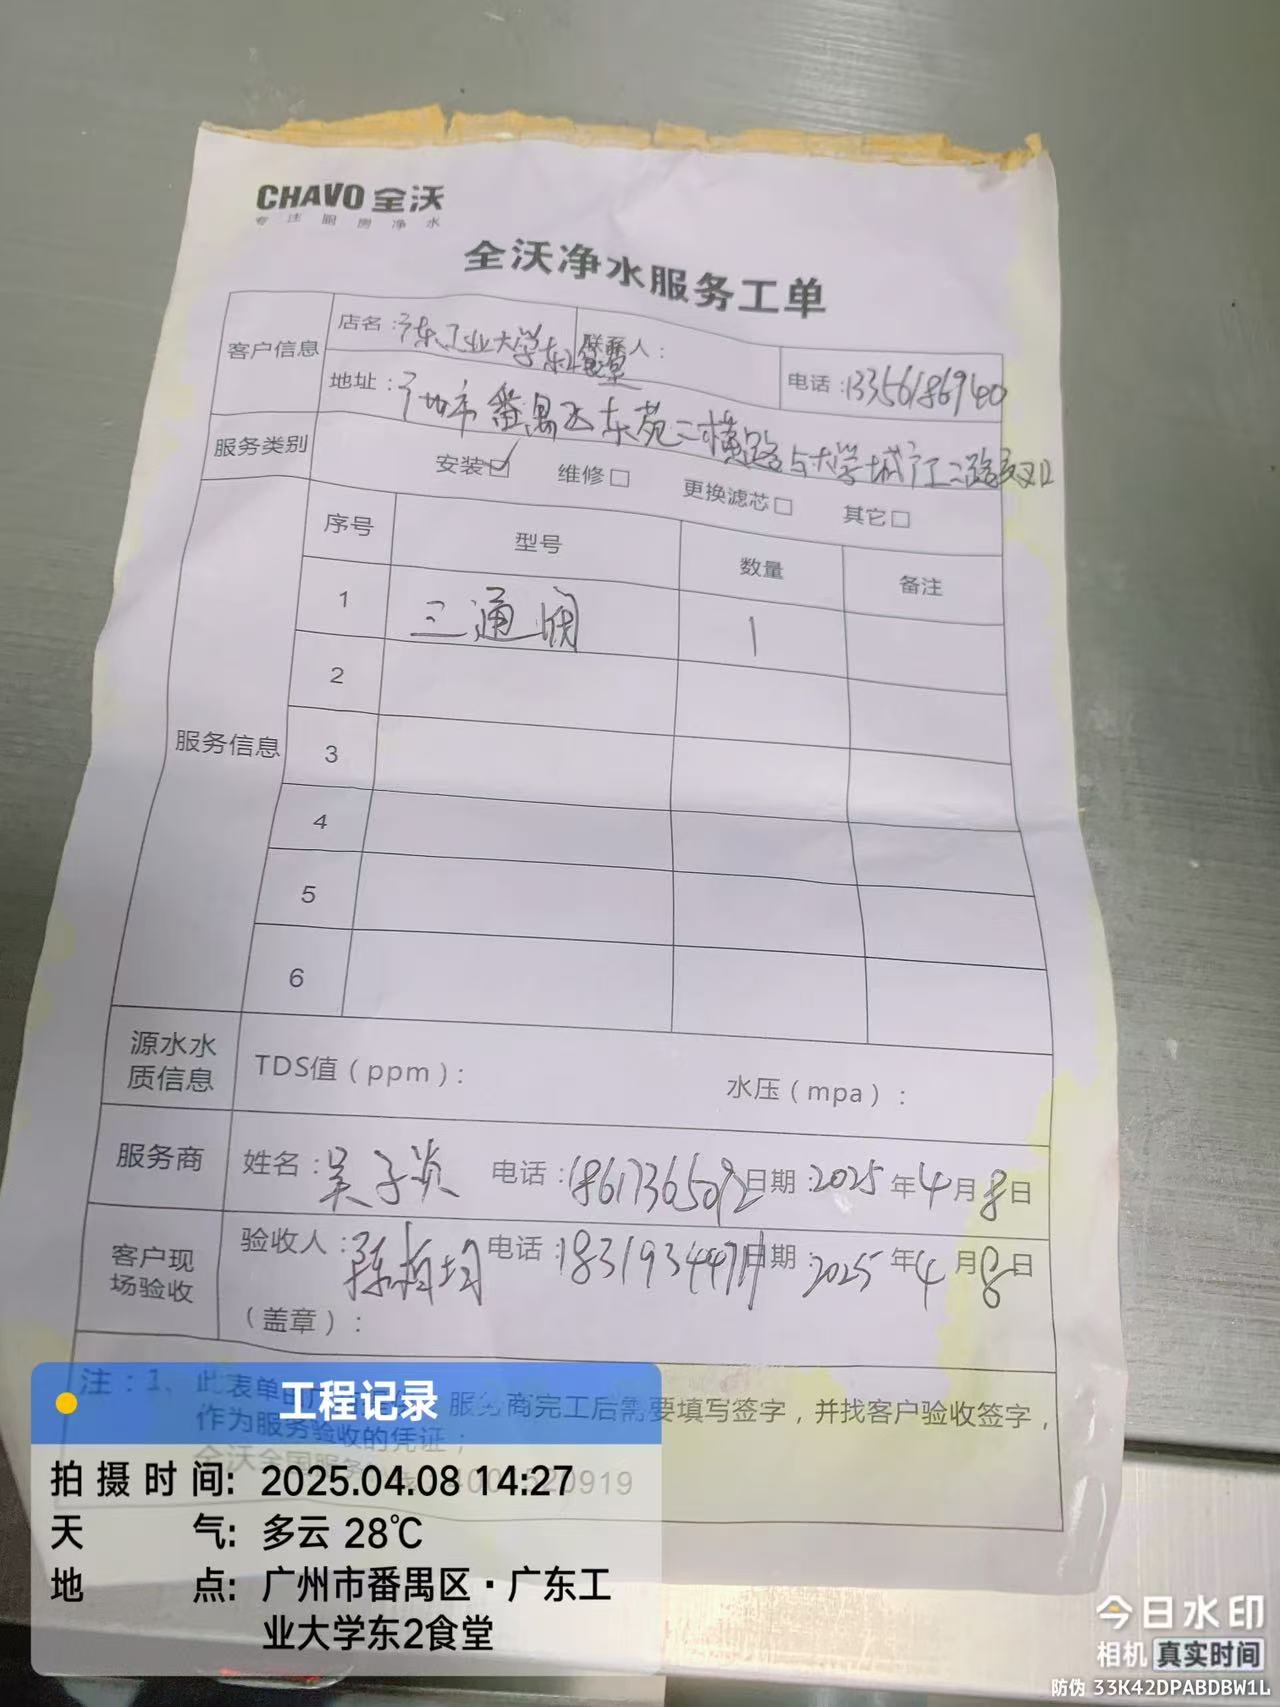 CHAVO 全沃
专注厨房净水
全沃净水服务工单
客户信息 店名：广东工业大学东2食堂 联系人： 电话：13356186940
地址：广州市番禺区东苑二横路与大学城广工二路交叉口
服务类别 安装☑ 维修□ 更换滤芯□ 其它□
服务信息 序号 型号 数量 备注
1 三通阀 1
2
3
4
5
6
源水水质信息 TDS值（ppm）： 水压（mpa）：
服务商 姓名：吴子炎 电话：18617365092 日期：2025年4月8日
客户现场验收 验收人： 电话： 日期：2025年4月8日
（盖章）：
注：1、此表单 服务商完工后需要填写签字，并找客户验收签字，
作为服务验收的凭证；
全沃全国服务
工程记录
拍摄时间：2025.04.08 14:27
天气：多云 28℃
地点：广州市番禺区·广东工
业大学东2食堂
今日水印
相机 真实时间
防伪 33K42DPABDBW1L